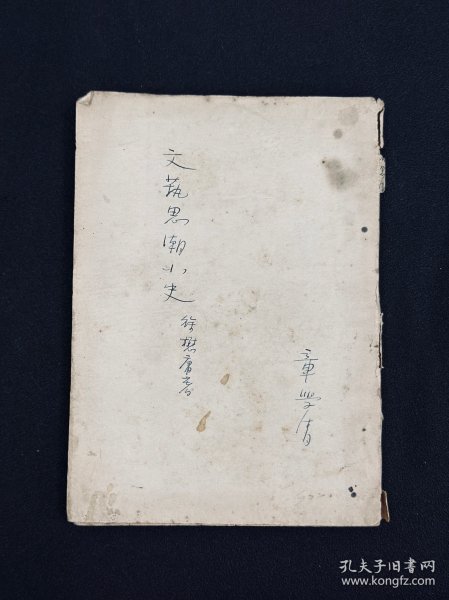 文藝思潮小史
徐懋庸著
章學清
孔夫子旧书网
www.kongfz.com